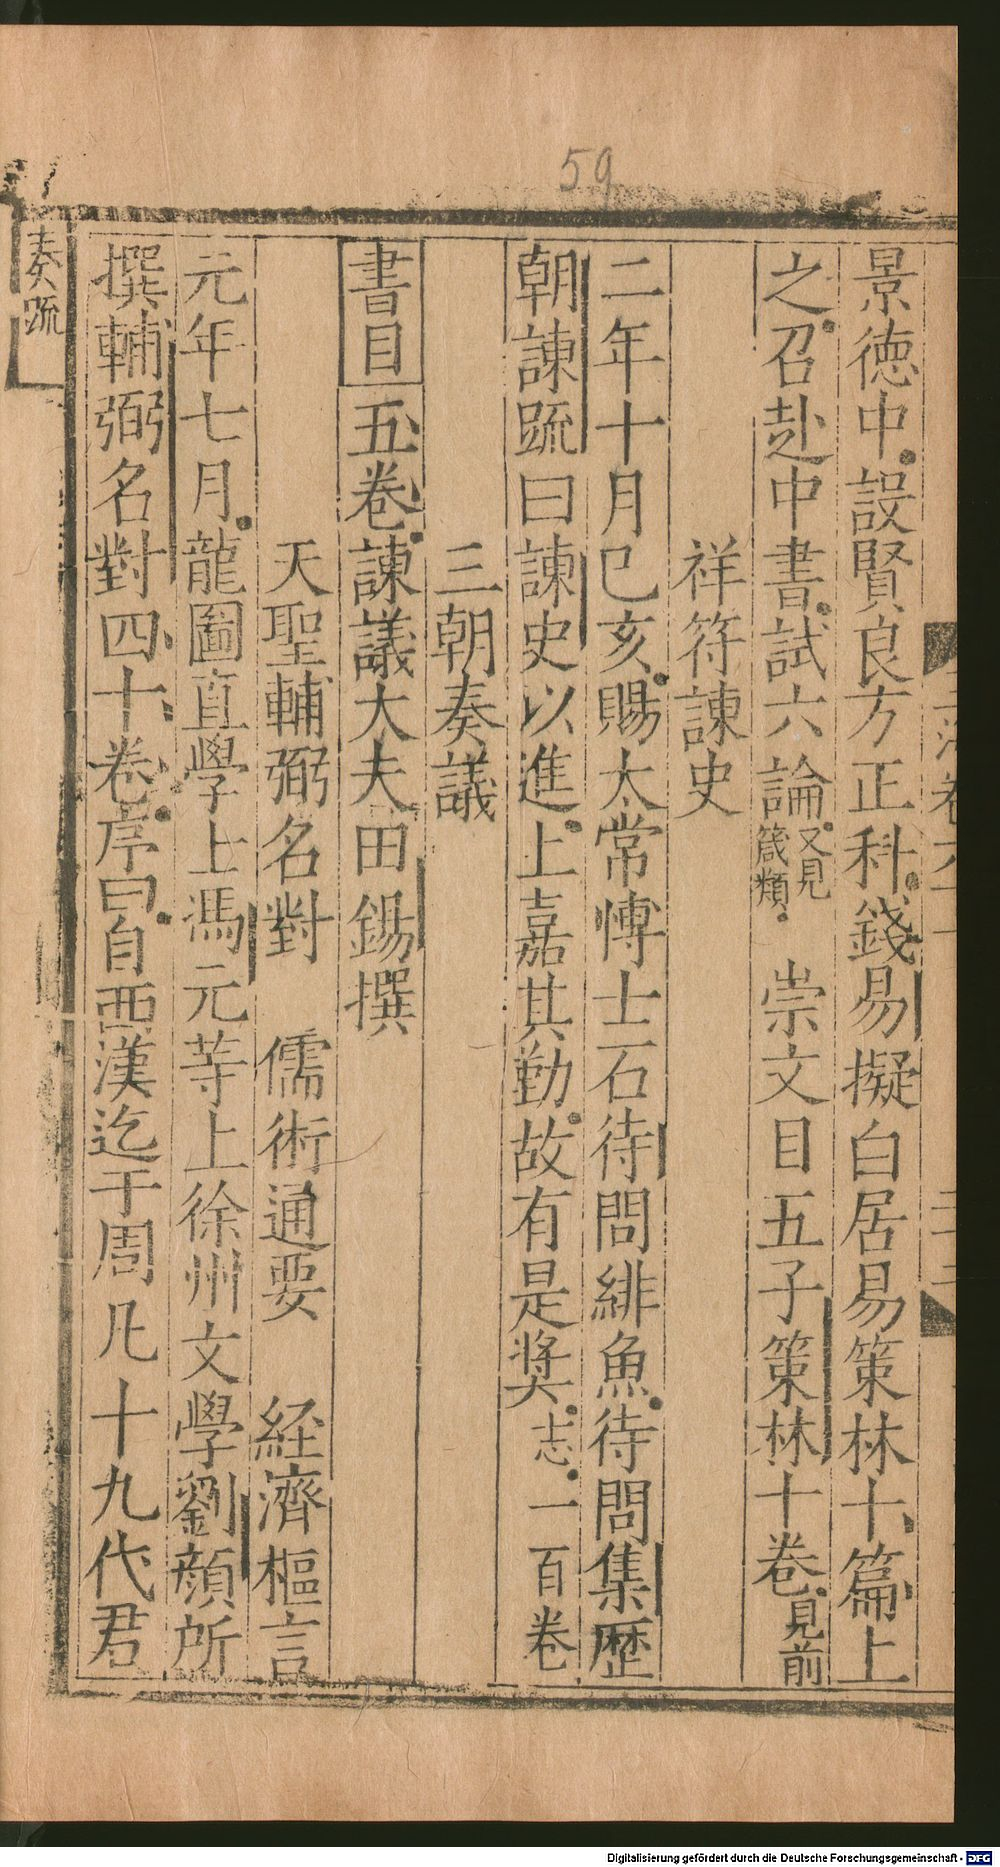 59
景徳中設賢良方正科錢易擬白居易策林十篇上
之召赴中書試六論又見箴類 崇文目五子策林十卷見前
祥符諌史
二年十月己亥賜太常博士石待問緋魚待問集歴
朝諌疏曰諌史以進上嘉其勤故有是奬志一百卷
三朝奏議
書目五卷諌議大夫田錫撰
天聖輔弼名對 儒術通要 経濟樞言
元年七月龍圖直學士馮元等上徐州文學劉顔所
撰輔弼名對四十卷序曰自西漢迄于周凡十九代君
奏疏
Digitalisierung gefördert durch die Deutsche Forschungsgemeinschaft - DFG